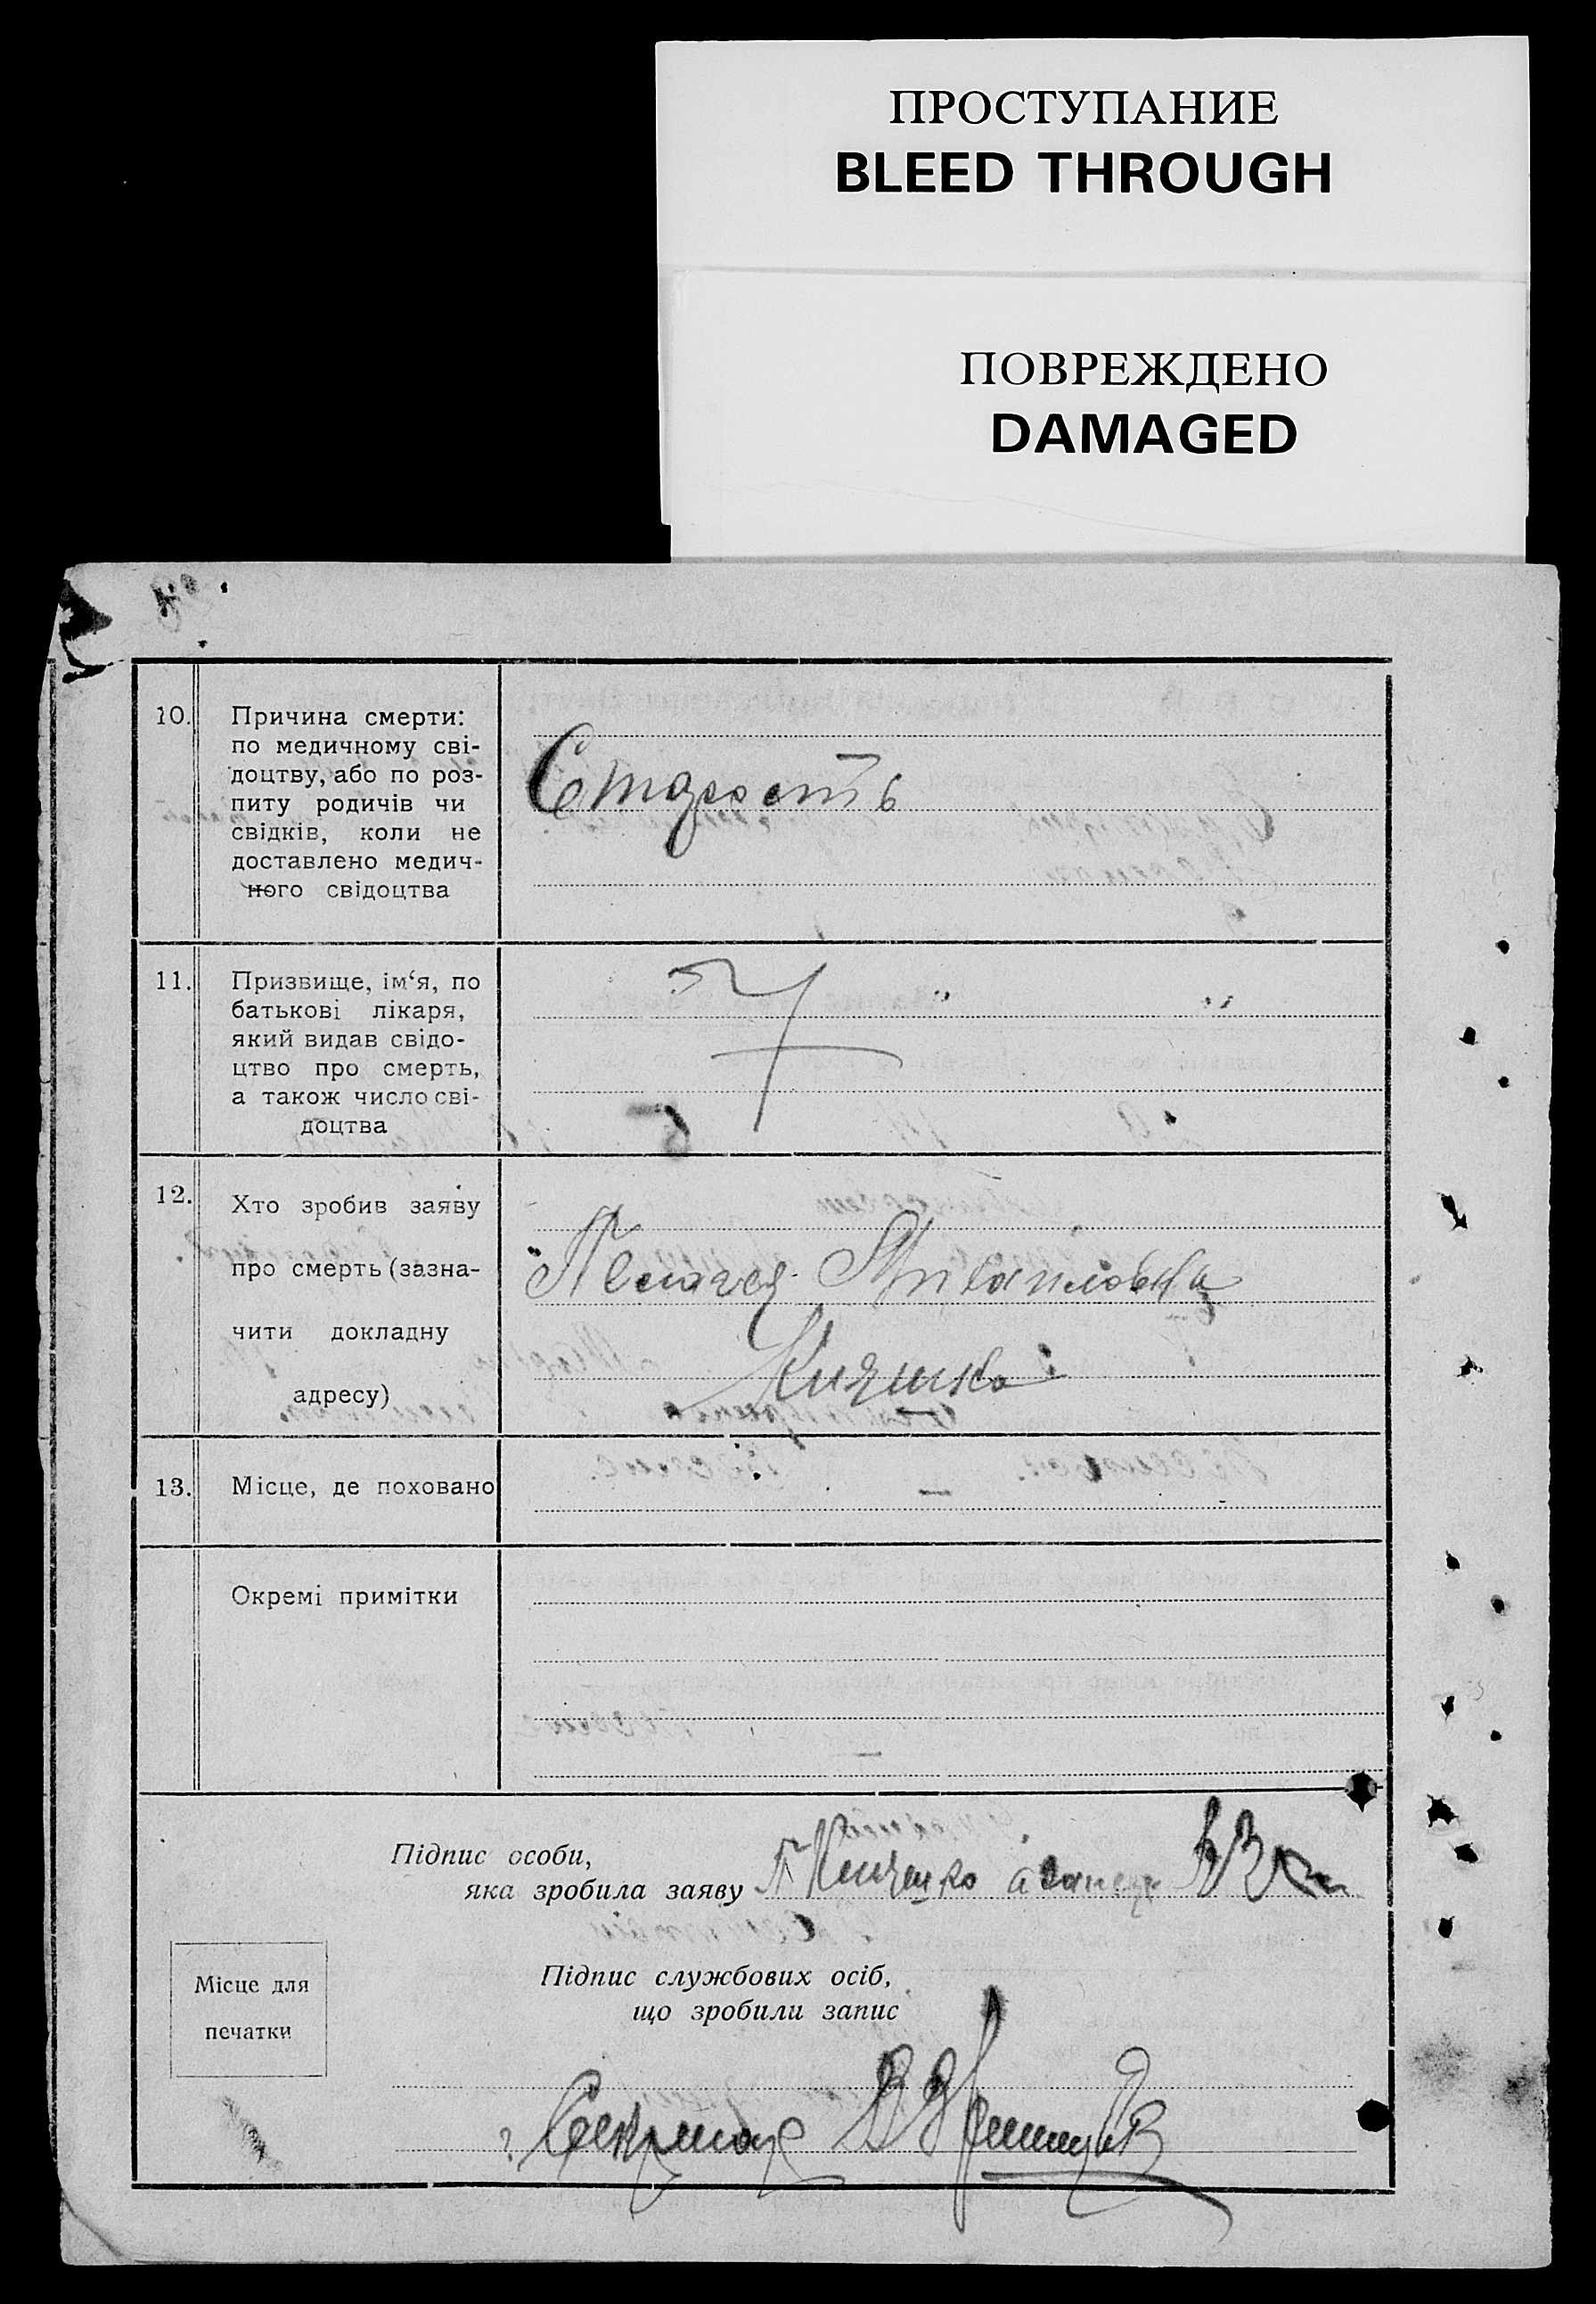 ПРОСТУПАНИЕ
BLEED THROUGH
ПОВРЕЖДЕНО
DAMAGED
10.
Причина смерти:
по медичному сві-
доцтву, або по роз-
питу родичів чи
свідків, коли не
доставлено медич-
ного свідоцтва
Старость
11.
Призвище, ім‘я, по
батькові лікаря,
який видав свідо-
цтво про смерть,
а також число сві-
доцтва
12.
Хто зробив заяву
про смерть (зазна-
чити докладну
адресу)
Пелагея
13.
Місце, де поховано
—
Окремі примітки
—
Підпис особи,
яка зробила заяву
Місце для
печатки
Підпис службових осіб,
що зробили запис
Секретар